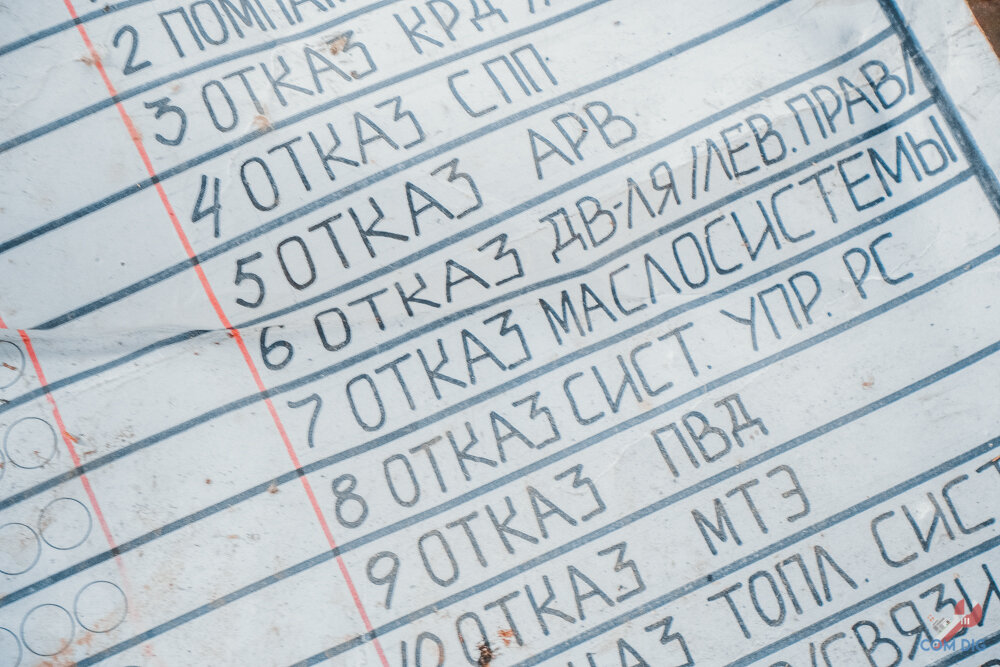 2 ПОМПАЖ
3 ОТКАЗ КРД
4 ОТКАЗ СПП
5 ОТКАЗ АРВ
6 ОТКАЗ ДВ-ЛЯ //ЛЕВ.ПРАВ/
7 ОТКАЗ МАСЛОСИСТЕМЫ
8 ОТКАЗ СИСТ. УПР. РС
9 ОТКАЗ ПВД
10 ОТКАЗ МТЭ
КАЗ ТОПЛ. СИСТ
СВЯЗИ
COM DIG